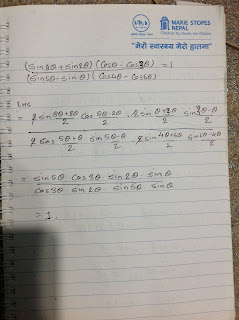 MARIE STOPES
NEPAL
Children by choice, not chance
"मेरो स्वास्थ्य मेरो हातमा"
(Sin8θ + sin2θ) (Cosθ - Cos3θ) = 1
(Sin5θ - sin θ) (Cos4θ - Cos6θ)
LHS
= 2 sin 8θ+2θ/2 cos 8θ-2θ/2 . 2 sin θ+3θ/2 sin 3θ-θ/2
2 Cos 5θ+θ/2 sin 5θ-θ/2 . 2 sin 4θ+6θ/2 sin 6θ-4θ/2
= sin 5θ. Cos 3θ. sin 2θ. sin θ
Cos 3θ. sin 2θ. sin 5θ. sin θ
= 1.